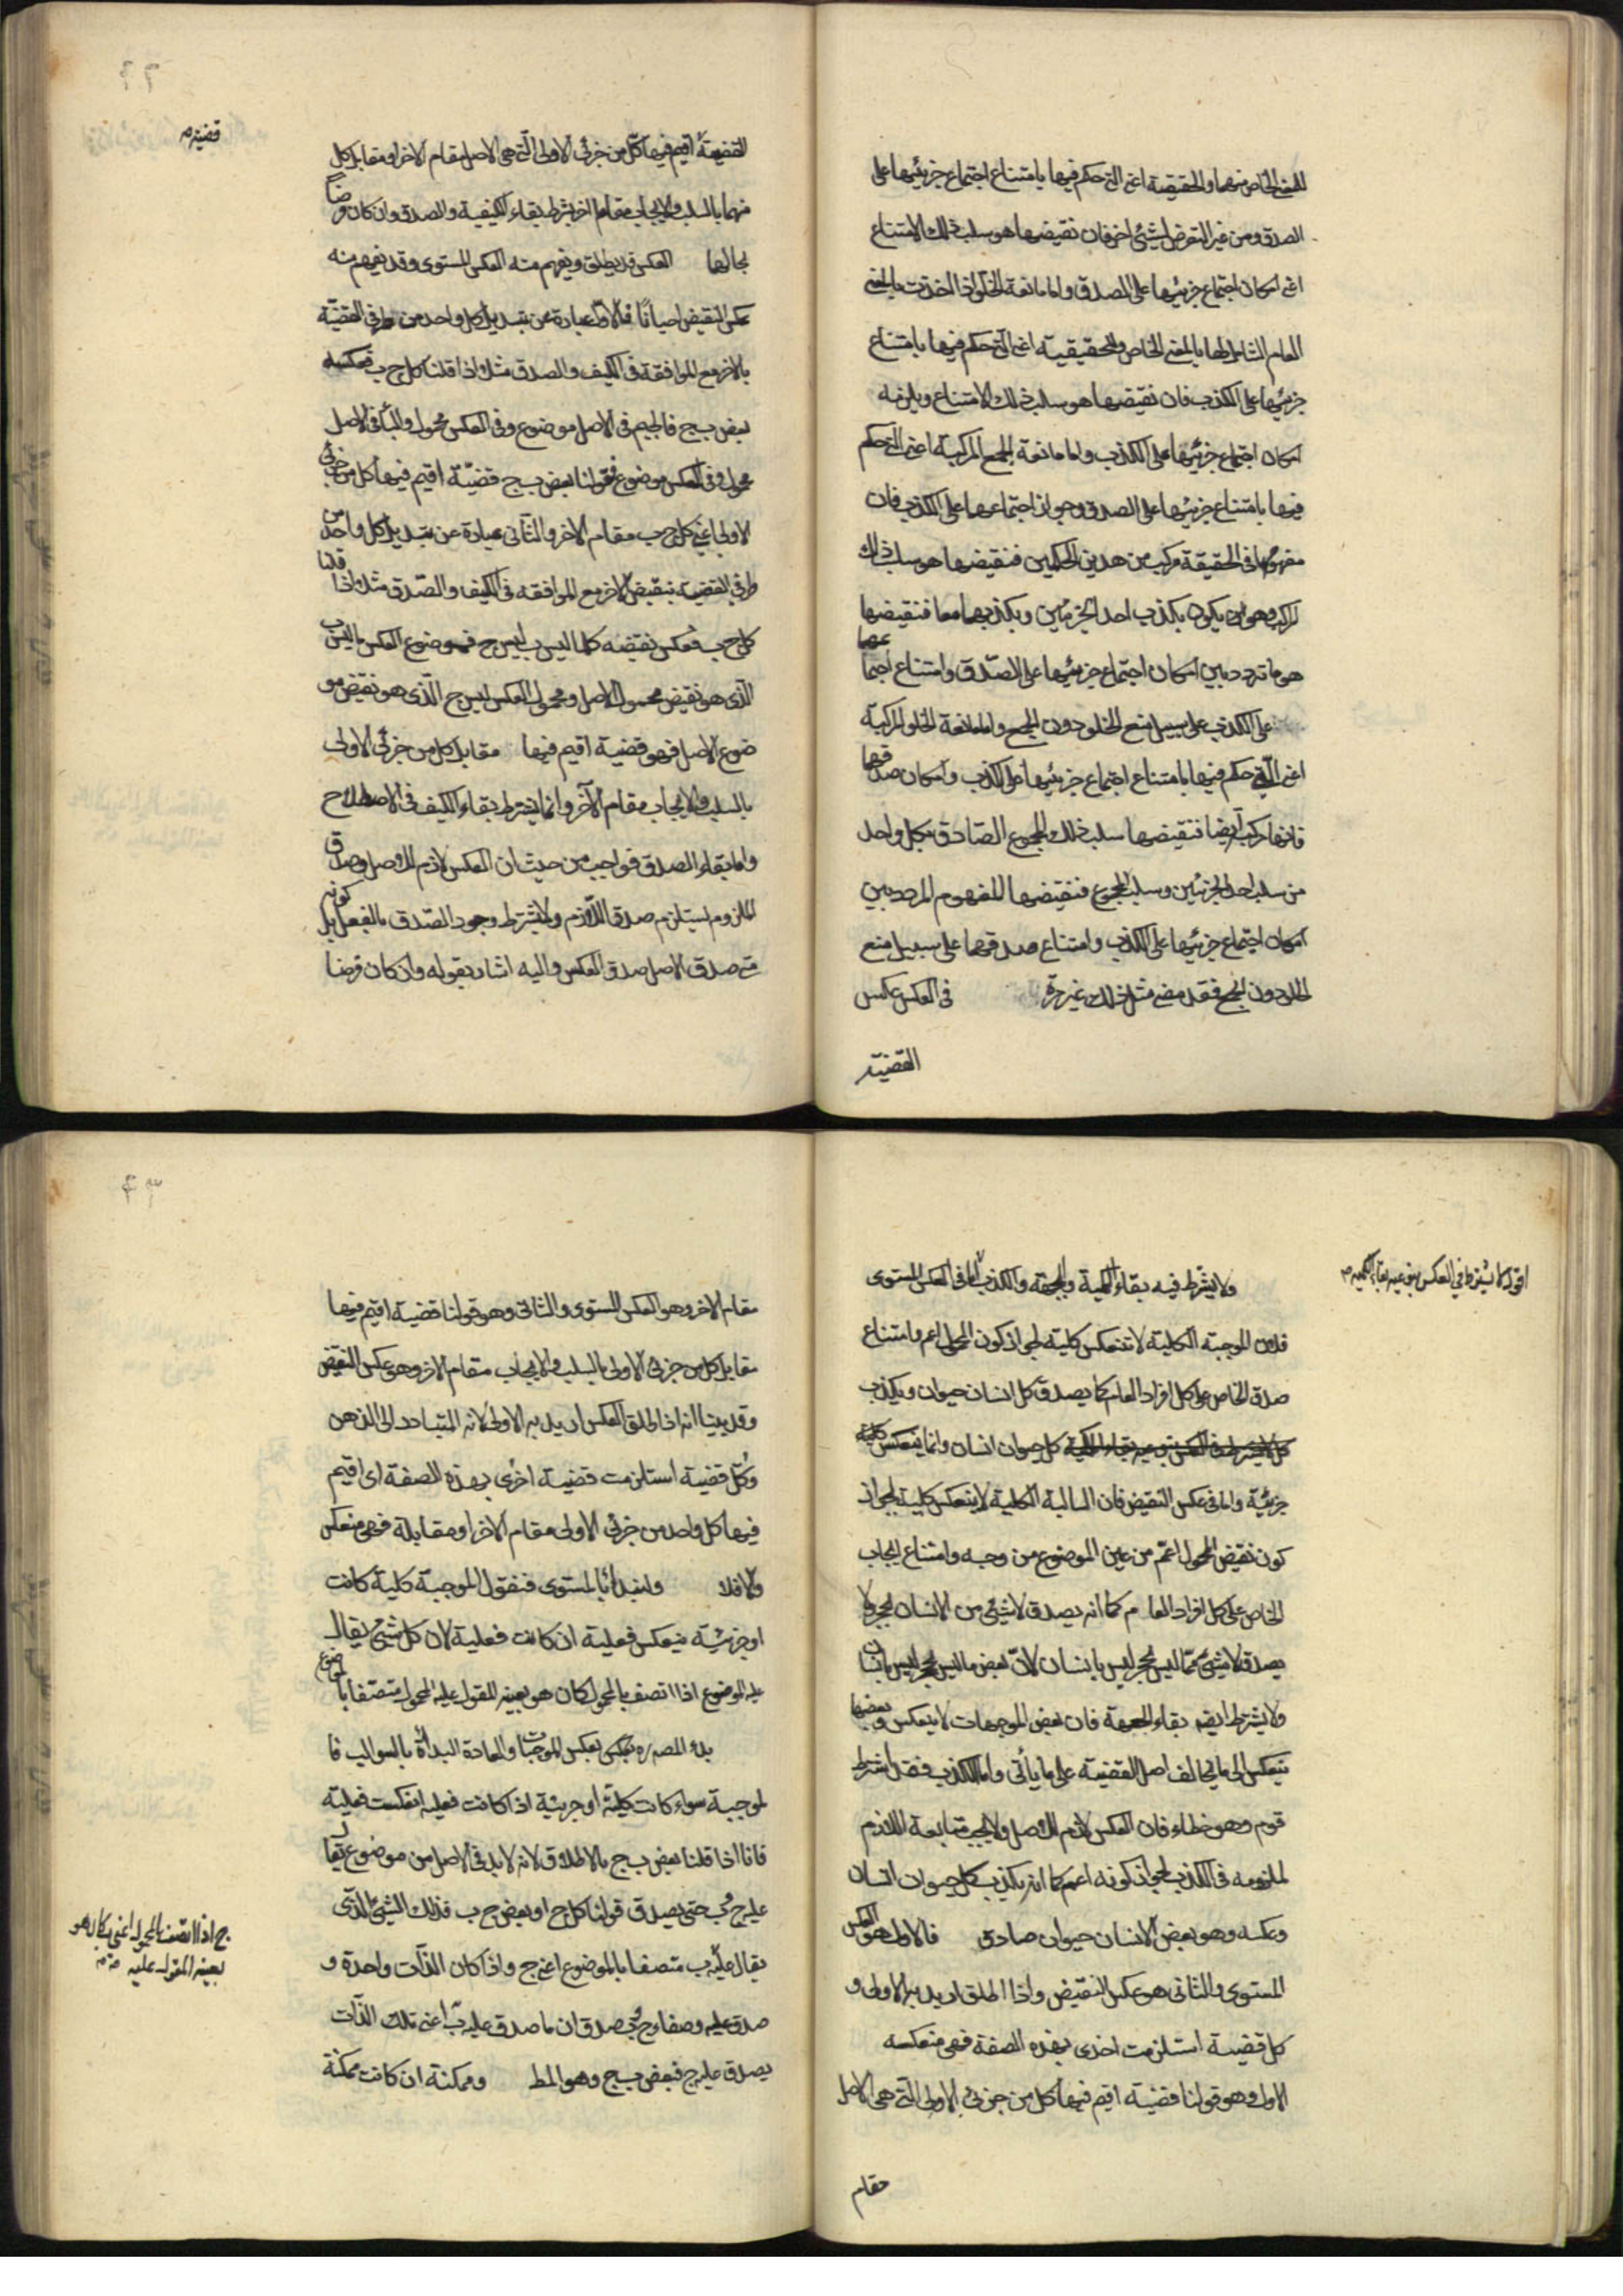 للمعنى الخاص منهما والحقيقية اعنى التى حكم فيها بامتناع اجتماع جزئيها على
الصدق ومن غير التعرض لشئ اخر فان نقيضها هو سلب ذلك الامتناع
اعنى امكان اجتماع جزئيها على الصدق واما مانعة الخلو اذا اخذت بالمعنى
العام الشامل لها بالمعنى الخاص وللحقيقية اعنى التى حكم فيها بامتناع
جزئيها على الكذب فان نقيضها هو سلب ذلك الامتناع ويلزمه
امكان اجتماع جزئيها على الكذب واما مانعة الجمع المركبة اعنى التى حكم
فيها بامتناع جزئيها على الصدق وجواز اجتماعها على الكذب فان
مفهومها فى الحقيقة مركب من هذين الحكمين فنقيضها هو سلب ذلك
المركب وهو ان يكون بكذب احد الجزئين وبكذبهما معا فنقيضها
هو ما تردد بين امكان اجتماع جزئيها على الصدق وامتناع اجتماعها
على الكذب على سبيل منع الخلو دون الجمع واما مانعة الخلو المركبة
اعنى التى حكم فيها بامتناع اجتماع جزئيها على الكذب وامكان صدقهما
فانها مركب ايضا فنقيضها سلب ذلك المجموع الصادق بكل واحد
من سلب احد الجزئين وسلب المجموع فنقيضها المفهوم المردد بين
امكان اجتماع جزئيها على الكذب وامتناع صدقهما على سبيل منع
الخلو دون الجمع فقد مضى مثل ذلك غير مرة فى العكس عكس
القضية
قضية م
القضية اقيم فيها كل من جزئى الاولى التى هى الاصل مقام الاخر او مقابل كل
منهما بالسلب والايجاب مقام الاخر بشرط بقاء الكيفية والصدق وان كان فرضا
بحالها العكس قد يطلق ويفهم منه العكس المستوى وقد يفهم منه
عكس النقيض احيانا فالاول عبارة عن تبديل كل واحد من طرفى القضية
بالاخر مع الموافقة فى الكيف والصدق مثلا اذا قلنا كل ج ب فعكسه
بعض ب ج فالجيم فى الاصل موضوع وفى العكس محمول والباء فى الاصل
محمول وفى العكس موضوع فقولنا بعض ب ج قضية اقيم فيها كل من جزئى
الاولى اعنى كل ج ب مقام الاخر والثانى عبارة عن تبديل كل واحد من
طرفى القضية بنقيض الاخر مع الموافقة فى الكيف والصدق مثلا اذا قلنا
كل ج ب فعكس نقيضه كلما ليس ب ليس ج فموضوع العكس ما ليس ب
الذى هو نقيض محمول الاصل ومحمول العكس ليس ج الذى هو نقيض مو
ضوع الاصل فهو قضية اقيم فيها مقابل كل من جزئى الاولى
بالسلب والايجاب مقام الآخر وانما يشترط بقاء الكيف فى الاصطلاح
واما بقاء الصدق فواجب من حيث ان العكس لازم للاصل وصدق
الملزوم يستلزم صدق اللازم ولا يشترط وجود الصدق بالفعل بل كونه
متى صدق الاصل صدق العكس واليه اشار بقوله وان كان فرضا
اقول لا يشترط فى العكس بنوعيه بقاء الكمية م
ولا يشترط فيه بقاء الكمية والجهة والكذب اما فى العكس المستوى
فلان الموجبة الكلية لا تنعكس كلية لجواز كون المحمول اعم وامتناع
صدق الخاص على كل افراد العام كما يصدق كل انسان حيوان ويكذب
كل حيوان انسان وانما ينعكس كلية
جزئية واما فى عكس النقيض فان السالبة الكلية لا ينعكس كلية لجواز
كون نقيض المحمول اعم من عين الموضوع من وجه وامتناع ايجاب
الخاص على كل افراد العام كما انه يصدق لا شئ من الانسان بحجر ولا
يصدق لا شئ مما ليس بحجر ليس بانسان لان بعض ما ليس بحجر ليس بانسان
ولا يشترط ايضه بقاء الجهة فان بعض الموجهات لا ينعكس وبعضها
ينعكس الى ما يخالف اصل القضية على ما يأتى واما الكذب فقد اشترط
قوم وهو خطاء فان العكس لازم للاصل ولا يجب متابعة اللازم
لملزومه فى الكذب لجواز كونه اعم كما انه يكذب كل حيوان انسان
وعكسه وهو بعض الانسان حيوان صادق فالاول هو العكس
المستوى والثانى هو عكس النقيض واذا اطلق اريد به الاولى و
كل قضية استلزمت اخرى بهذه الصفة فهى منعكسه
الاول وهو قولنا قضية اقيم فيها كل من جزئى الاولى التى هى الاصل
مقام
مقام الاخر وهو العكس المستوى والثانى وهو قولنا قضية اقيم فيها
مقابل كل من جزئى الاولى بالسلب والايجاب مقام الاخر وهو عكس النقيض
وقد بينا انه اذا اطلق العكس اريد به الاولى لانه المتبادر الى الذهن
وكل قضية استلزمت قضية اخرى بهذه الصفة اى اقيم
فيها كل واحد من جزئى الاولى مقام الاخر او مقابلة فهى منعكس
والا فلا ولنبدأ بالمستوى فنقول الموجبة كلية كانت
او جزئية ينعكس فعلية ان كانت فعلية لان كل شئ يقال
عليه الموضوع اذا اتصف بالمحمول كان هو بعينه المقول عليه المحمول متصفا بالموضوع
بدء المصره بعكس الموجبات والعادة البدأة بالسوالب فا
لموجبة سواء كانت كلية او جزئية اذا كانت فعليه انعكست فعلية
فانا اذا قلنا بعض ب ج بالاطلاق لانه لا بد فى الاصل من موضوع يقال
عليه ج وب حتى يصدق قولنا كل ج او بعض ج ب فذلك الشئ الذى
يقال عليه ب متصفا بالموضوع اعنى ج واذا كان الذات واحدة و
صدق عليه وصفا وج وب صدق ان ما صدق عليه ب اعنى تلك الذات
يصدق عليه ج فبعض ب ج وهو المط وممكنة ان كانت ممكنة
ج اذا اتصف بالمحمول اعنى ب كان هو
بعينه المقول عليه م